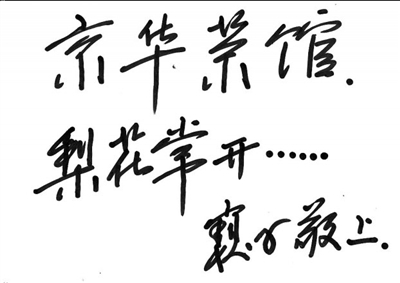 京华茶馆.
梨花常开……
敬上.